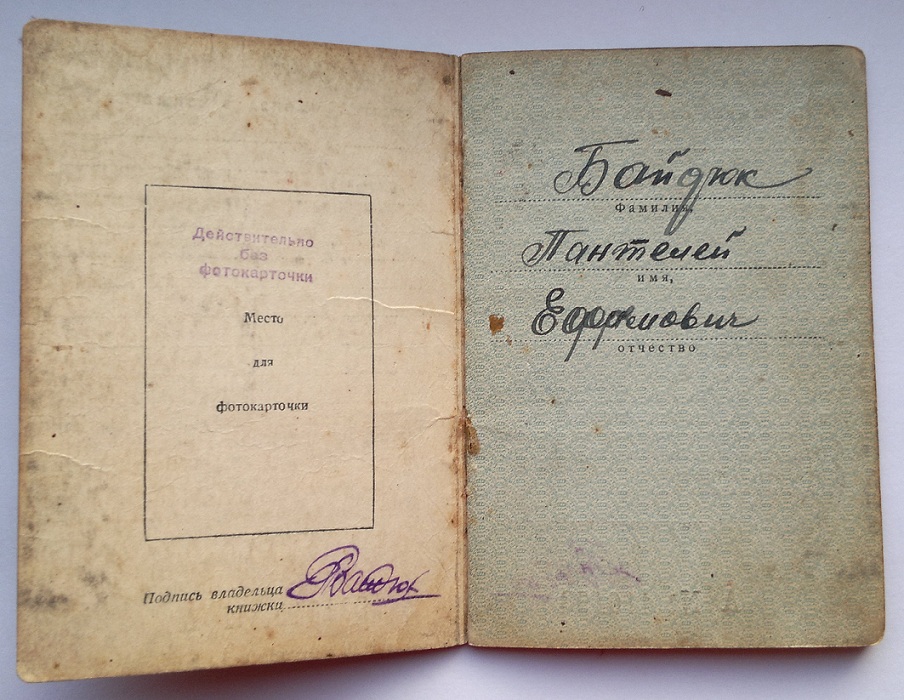 Действительно
без
фотокарточки
Место
для
фотокарточки
Подпись владельца
книжки
Байдюк
Байдюк
Фамилия,
Пантелей
имя,
Ефимович
отчество